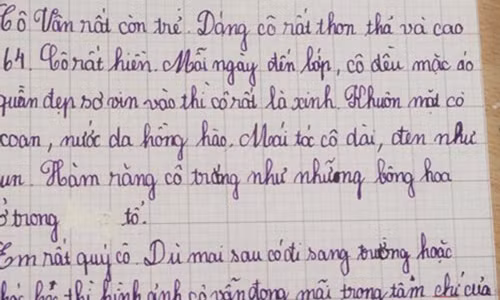 Cô Vân rất còn trẻ. Dáng cô rất thon thả và cao
64. Cô rất hiền. Mỗi ngày đến lớp, cô đều mặc áo
quần đẹp sơ vin vào thì cô rất là xinh. Khuôn mặt cô
coan, nước da hồng hào. Mái tóc cô dài, đen như
un. Hàm răng cô trắng như những bông hoa
ở trong tố.
Em rất quý cô. Dù mai sau có đi sang trường hoặc
thì hình ảnh cô vẫn đọng mãi trong tâm chí của